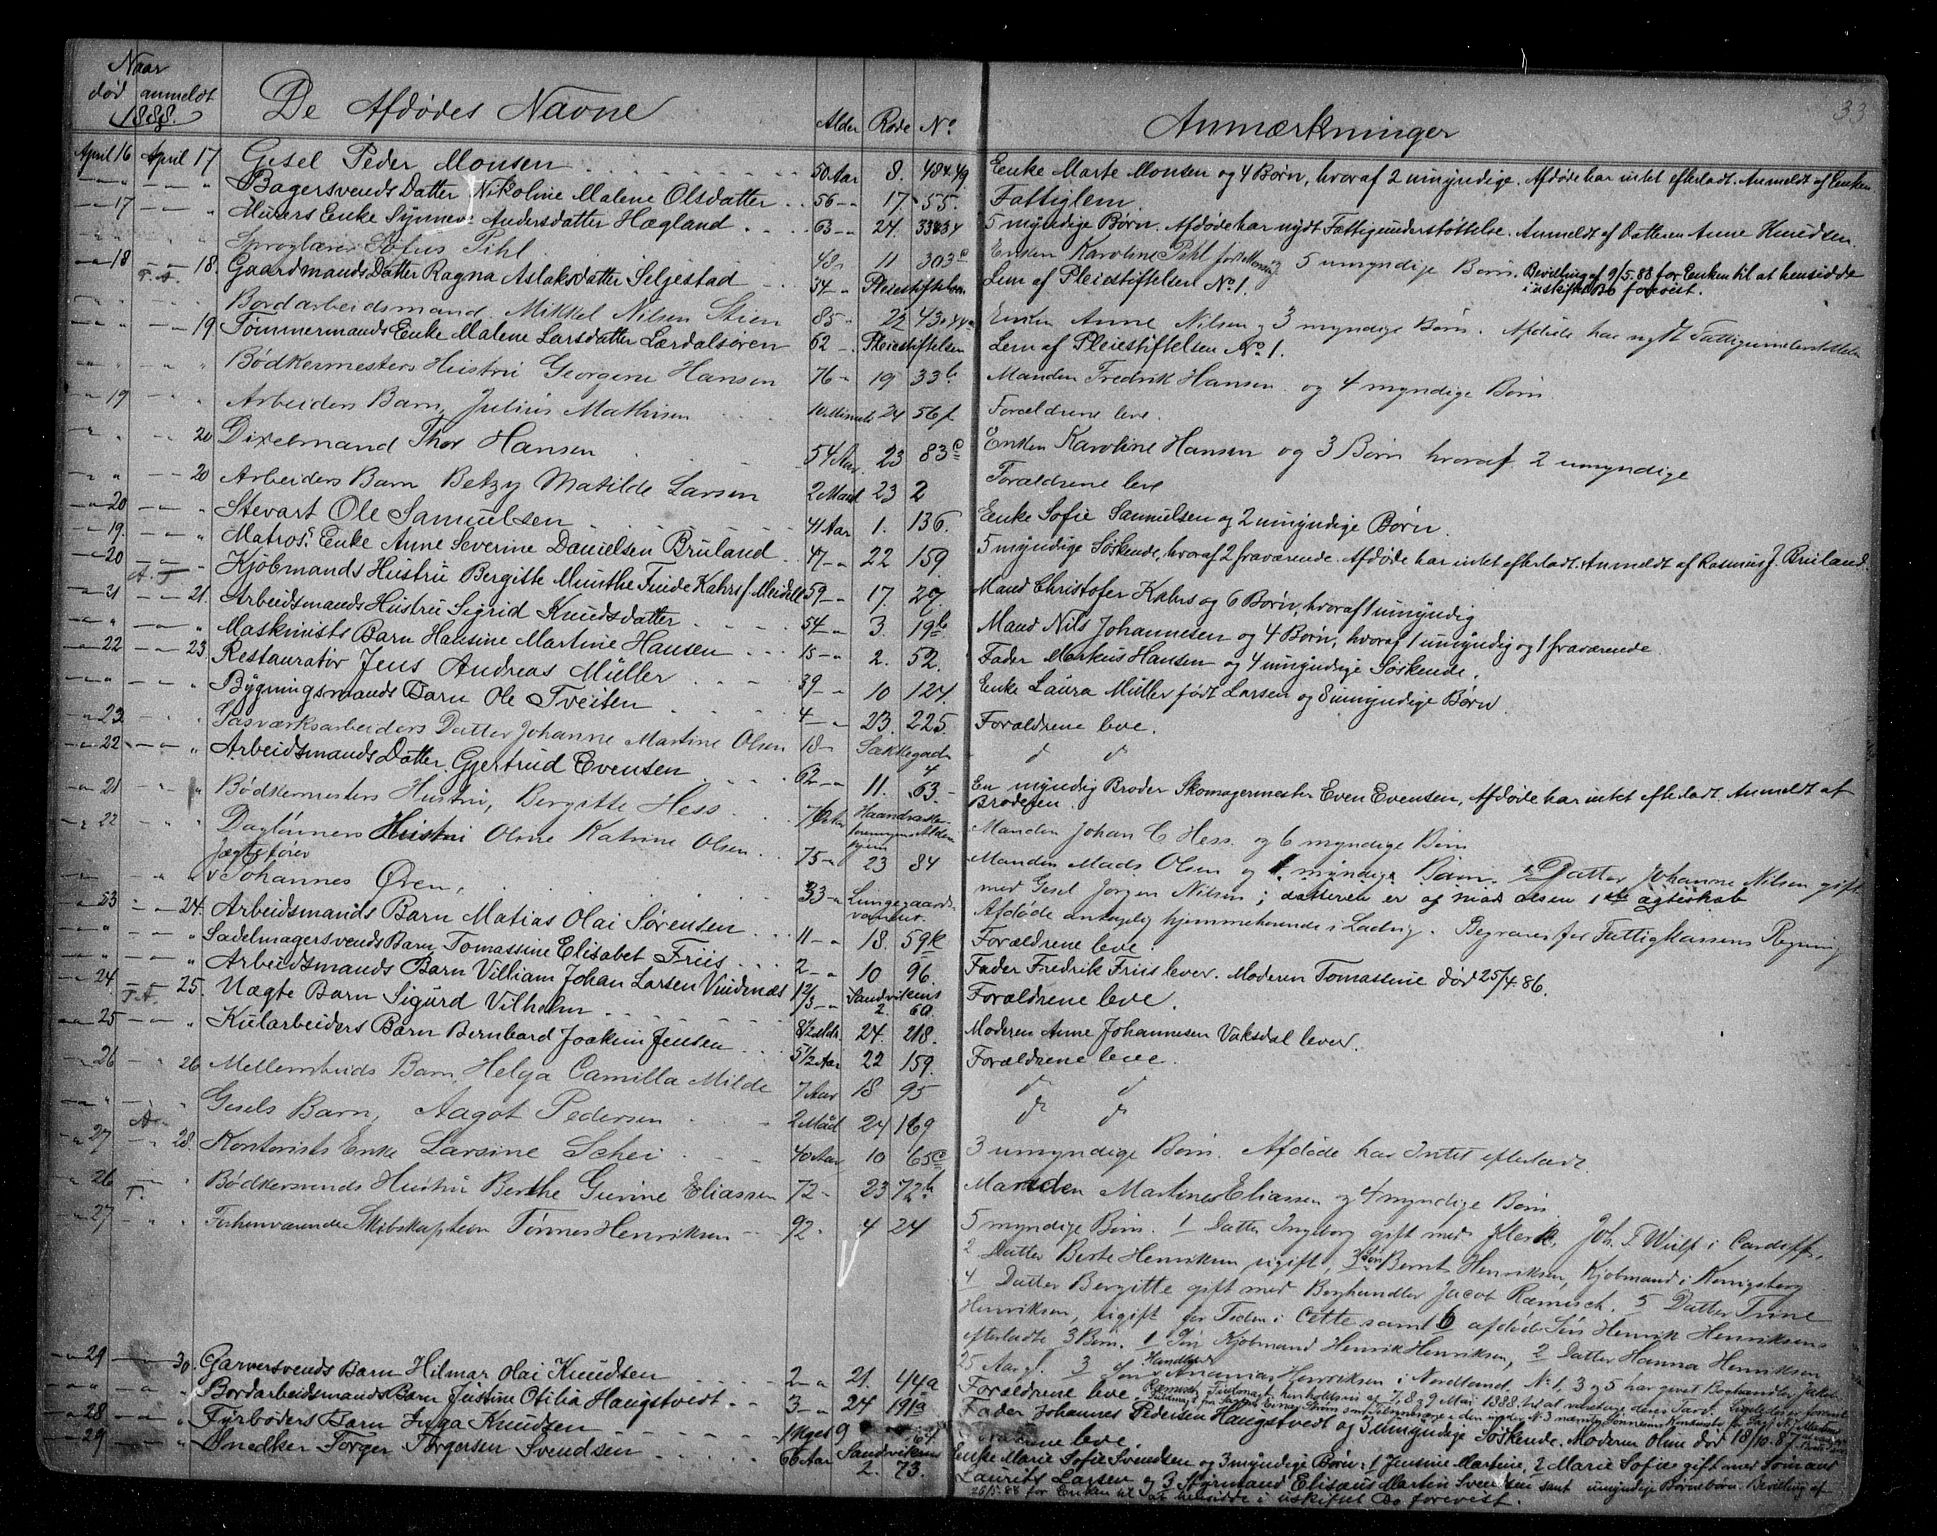 33
Naar
død anmeldt
1888.
De Afdødes Navne Alder Rode No Anmærkninger
April 16 April 17 Gesel Peder Monsen 50 Aar 8. 48 & 49 Enke Marte Monsen og 4 Børn, hvoraf 2 umyndige. Afdøde har intet efterladt. Anmeldt af Enken
Bagersvends Datter Nikoline Malene Olsdatter 56 17. 55. Fattiglem.
17 Murers Enke Synneve Andersdatter Hægland 63 24. 33 & 34 5 myndige Børn. Afdøde har nydt Fattigunderstøttelse. Anmeldt af Datteren Anne Knudsen
Sproglærer Sofus Pihl 48 11 303c Enken Karoline Pihl født Monsen og 5 umyndige Børn. Bevilling af 9/5.88 for Enken til at hensidde
i uskiftet Bo forevist.
18 T. A. 18. Gaardmands Datter Ragna Aslaksdatter Seljestad 34 Pleiestiftelsen Lem af Pleiestiftelsen No 1.
Bordarbeidsmand Mikkel Nilsen Steen 85 22 43 & 44 Enken Anne Nilsen og 3 myndige Børn. Afdøde har nydt Fattigunderstøttelse
19 Tømmermands Enke Malene Larsdatter Lærdalsøren 62 Pleiestiftelsen Lem af Pleiestiftelsen No 1.
Bødkermesters Hustru Georgine Hansen 76 19 33b Manden Fredrik Hansen og 4 myndige Børn
19 Arbeiders Barn, Julius Mathisen 10 Minut 24 56f Forældrene leve.
20 Dixelmand Thor Hansen 54 Aar 23 83c Enken Karoline Hansen og 3 Børn hvoraf 2 umyndige
20 Arbeiders Barn Betzy Matilde Larsen 2 Maad 23 2 Forældrene leve
20 Stevart Ole Samuelsen 41 Aar 1. 136. Enke Sofie Samuelsen og 2 umyndige Børn.
19. Matros. Enke Anne Severine Danielsen Bruland 47 22 159. 5 myndige Søskende, hvoraf 2 fraværende. Afdøde har intet efterladt. Anmeldt af Rasmus J. Bruland.
20 A. T. Kjøbmands Hustru Bergitte Munthe Finde Kahrs f. Meidell 59 17. 27. Mand Christofer Kahrs og 6 Børn, hvoraf 1 umyndig
21 21. Arbeidsmands Hustru Sigrid Knudsdatter 54 3. 19b Mand Nils Johannesen og 4 Børn, hvoraf 1 umyndig og 1 fraværende.
Maskinists Barn Hansine Martine Hansen 15 2. 52. Fader Markus Hansen og 4 umyndige Søskende.
22 23. Restauratør Jens Andreas Müller 39 10 124. Enke Laura Müller født Larsen og 8 umyndige Børn.
Bygningsmands Barn Ole Tveiten 4 23. 225. Forældrene leve.
23. Gasværksarbeiders Datter Johanne Martine Olsen 18 Sækkegaden 4 d d
22 Arbeidsmands Datter Gjertrud Evensen 62 11. 63. En myndig Broder Skomagermester Even Evensen, Afdøde har intet efterladt. Anmeldt af
Broderen.
21 Bødkermesters Hustru, Bergitte Hess 76 Aar Haandværkerforeningens Alderhjem Manden Johan C Hess og 6 myndige Børn
22 Daglønners Hustru Oline Katrine Olsen 75 23 84 Manden Mads Olsen og 1 myndige Barn. Datter Johanne Nilsen gift
med Gesel Jørgen Nilsen; datteren er af Mads Olsen 1ste ægteskab
Jægtefører
Johannes Øren 33 Lungegaardsvandet. Afdøde antagelig hjemmehørende i Ladvig. Begraves for Fattigkassens Regning
23 24. Arbeidsmands Barn Matias Olai Sørensen 11 18. 59k Forældrene leve.
Sadelmagersvends Barn Tomassine Elisabet Friis 2 10 96. Fader Fredrik Friis lever. Moderen Tomassine død 25/4 86.
Arbeidsmands Barn Villiam Johan Larsen Vindenæs 1 2/3 Sandvikens 2. 60. Forældrene leve.
24. T. A. 25. Uægte Barn Sigurd Vilhelm 8 1/2 Mdr. 24. 218. Moderen Anne Johannesen Vaksdal lever.
25 Kularbeiders Barn Bernhard Joakim Jensen 5 1/2 Aar 22 159. Forældrene leve.
26 26 Mellemrheds Barn Helga Camilla Milde 7 Aar 18 95 d d
Gesels Barn, Aagot Pedersen 2 Maad 24 169 do do
27 28. Kontorists Enke Larsine Schei 40 Aar 10 65c 3 umyndige Børn. Afdøde har Intet efterladt.
26 T. Bødkersvends Hustru Berthe Gurine Eliassen 72 23 72b Manden Martines Eliassen og 4 myndige Børn
27 Forhenværende Skibskaptein Tønnes Henriksen 92 4 24 5 myndige Børn. 1 Datter Ingeborg gift med Klerk. Joh. T. Wulf i Cardiff,
2 Datter Berte Henriksen ugift, 3 Søn Bernt Henriksen, Kjøbmand i Kønigsberg
4 Datter Bergitte gift med Boghandler Jacob Ræmisch. 5 Datter Trine
Henriksen, ugift for Tiden i Cette samt 6 afdøde Søn Henrik Henriksens
efterladte 3 Børn. 1 Søn Kjøbmand Henrik Henriksen, 2 Datter Hanna Henriksen
25 Aar gl. 3 Søn Handlende Ananias Henriksen i Nordland. No 1, 3 og 5 har givet Boghandler Jakob
29 30. Garversvends Barn Hilmar Olai Knudsen 2 21. 44a Forældrene leve.
Bordarbeidsmands Barn Justine Otilia Haugstvedt 3 24 191a Fader Johannes Pedersen Haugstvedt og 3 umyndige Søskende. Moderen Oline død 18/10.87
28 Fyrbøders Barn Inga Knudsen 1 Uges 9 64 Forældrene leve.
29 Snedker Torger Torgersen Svendsen 66 Aar Sandviken 2. 73. Enke Marie Sofie Svendsen og 3 myndige Børn: 1 Jensine Martine, 2 Marie Sofie gift med Sømand
Laurits Larsen og 3 Styrmand Elisæus Martin Svendsen samt umyndige Børnebørn. Bevilling af
25/5.88 for Enken til at hensidde i uskiftet Bo forevist.